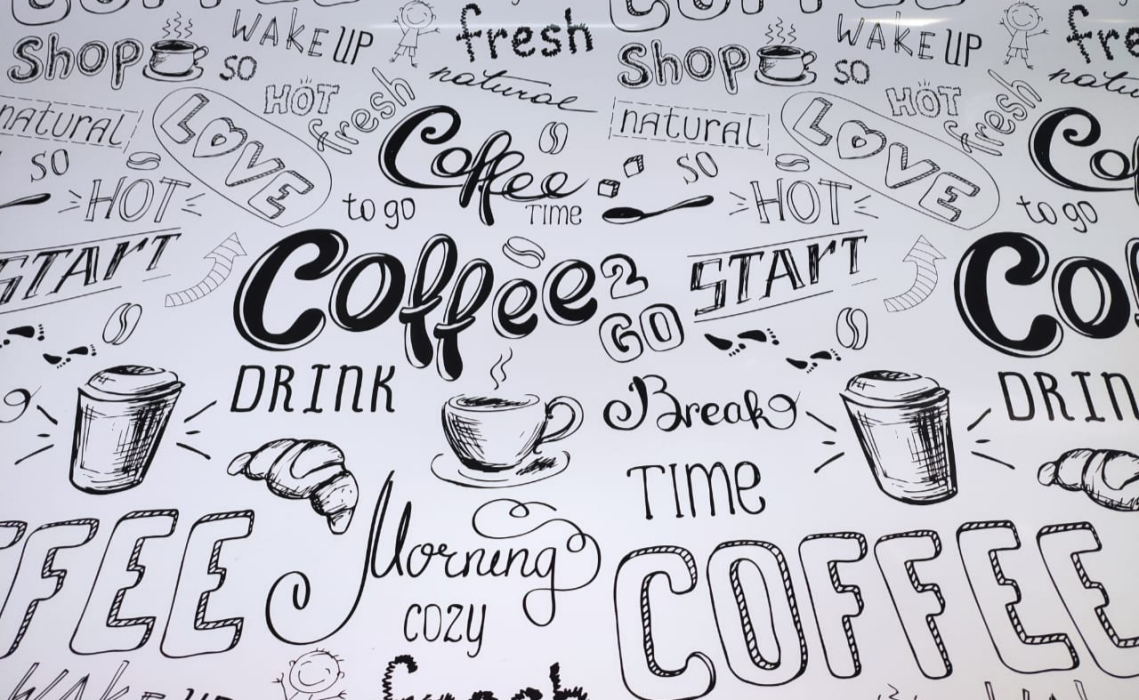 COFFEE
Shop
WAKE UP
SO
fresh
natural
Shop
WAKE UP
SO
fre
natu
natural
LOVE
HOT
fresh
Coffee
TIME
natural
LOVE
HOT
fresh
Co
SO
HOT
to go
SO
HOT
to go
START
Coffee 2
GO
START
Co
DRINK
Break
TIME
DRIN
FFEE
Morning
COZY
COFFEE
WAKE UP
fresh